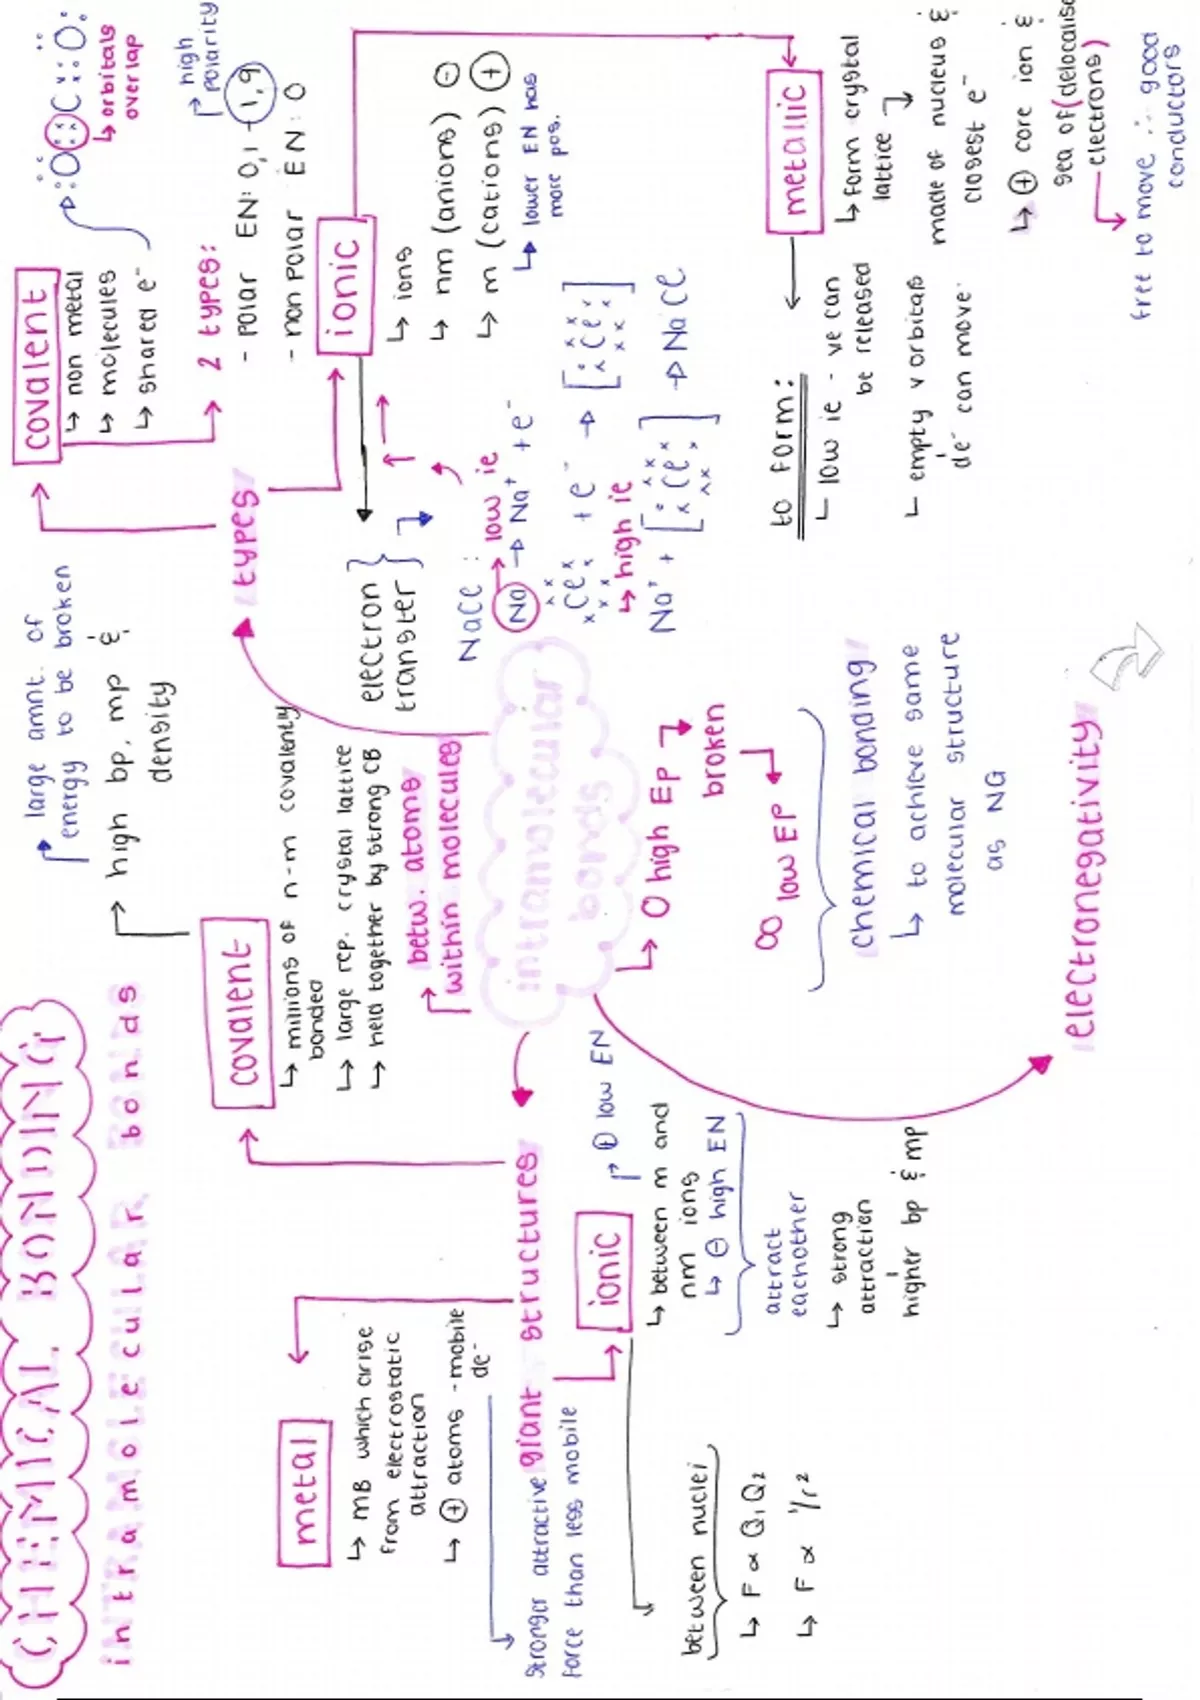 CHEMICAL BONDING
intramolecular bonds
metal
↳ MB which arise
from electrostatic
attraction
↳ ⊕ atoms - mobile
de⁻
stronger attractive
force than less mobile
giant structures
covalent
↳ millions of n-m covalently
bonded
↳ large rep. crystal lattice
↳ held together by strong CB
high bp, mp &
density
large amnt. of
energy to be broken
ionic
↳ between m and
nm ions
⊕ low EN
↳ ⊖ high EN
attract
eachother
↳ strong
attraction
higher bp & mp
between nuclei
↳ F ∝ Q₁Q₂
↳ F ∝ 1/r²
intramolecular
bonds
betw. atoms
within molecules
↳ 0 high EP
broken
∞ low EP
chemical bonding
↳ to achieve same
molecular structure
as NG
electronegativity
types
covalent
↳ non metal
↳ molecules
↳ shared e⁻
:O::C::O:
↳ orbitals
overlap
2 types:
- polar EN: 0,1 - 1,9
high
polarity
- non polar EN: 0
ionic
↳ ions
↳ nm (anions) ⊖
↳ m (cations) ⊕
↳ lower EN has
more pos.
electron
transfer
NaCl:
low ie
Na → Na⁺ + e⁻
Cl + e⁻ → [Cl]
↳ high ie
Na⁺ + [Cl] → NaCl
metallic
↳ form crystal
lattice
made of nucleus &
closest e⁻
↳ ⊕ core ion &
sea of (delocalise
electrons)
free to move ∴ good
conductors
to form:
low ie - ve can
be released
empty v orbitals
de⁻ can move